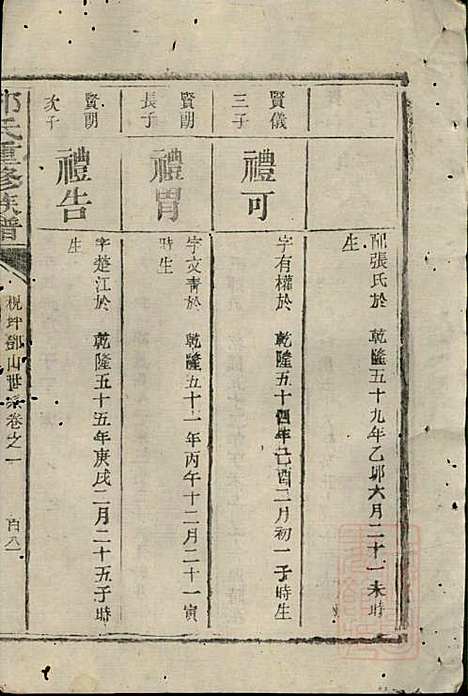 配張氏於　乾隆五十九年乙卯六月二十一未時
生
賢儀
三子
禮可
字有權於　乾隆五十四年己酉二月初一子時生
賢朗
長子
禮胃
字文青於　乾隆五十一年丙午十二月二十一寅
時生
賢朗
次子
禮告
字楚江於　乾隆五十五年庚戌二月二十五子時
生
氏重修族譜
梘坪鄧山世系卷之一
百八